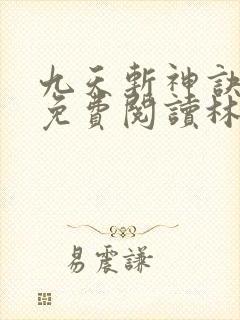 九天斬神訣
免費閱讀林
易震謙